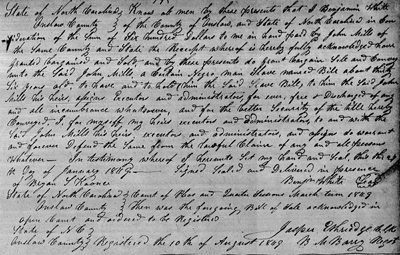 State of North Carolina } Know all men by these presents that I Benjamin White
Onslow County } of the County of Onslow, and State of North Carolina in Con
sideration of the Sum of Six hundred Dollars to me in hand paid by John Mills of
the Same County and State the Receipt whereof is hereby fully acknowledged have
granted bargained and Sold, and by these presents do grant Bargain Sell and Convey
unto the Said John Mills, a Certain Negro man Slave named Bill about thirty
Six years old, to have and to hold the Said Slave Bill, to him the Said John
Mills his heirs, assigns Executors and administrators for ever, free & Discharged of any
and all incumbrance whatsoever, and for the better Security of the hereby
Conveyed I, for myself my heirs executors and administrators to and with the
Said John Mills his heirs executors and administrators, and assigns do warrant
and forever Defend the Same from the Lawful Claim of any and all persons
Whatever - In testimony whereof I hereunto Set my Hand and Seal, this the
Day of January Signed Seald and Delivered in presence
of Koonce Benj White Seal
State of North Carolina } Court of Pleas and Quarter Sessions March term 1849
Onslow County } Then was the foregoing Bill of Sale acknowledged in
open Court and ordered to be Registered
Jasper Etheridge Clk
State of N C }
Onslow County } Registered the 10th of August 1849 B M Barry Regst